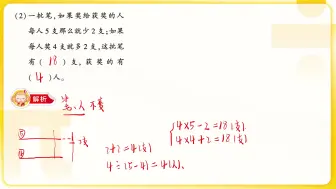 (2)一批笔,如果奖给获奖的人
每人5支那么就少2支;如果
每人奖4支就多2支,这批笔
有(18)支,获奖的有
(4)人。
解析
笔、人 不变
① 2支
②
2+2=4(支)
4÷(5-4)=4(人)。
4×5-2=18(支)
4×4+2=18(支)